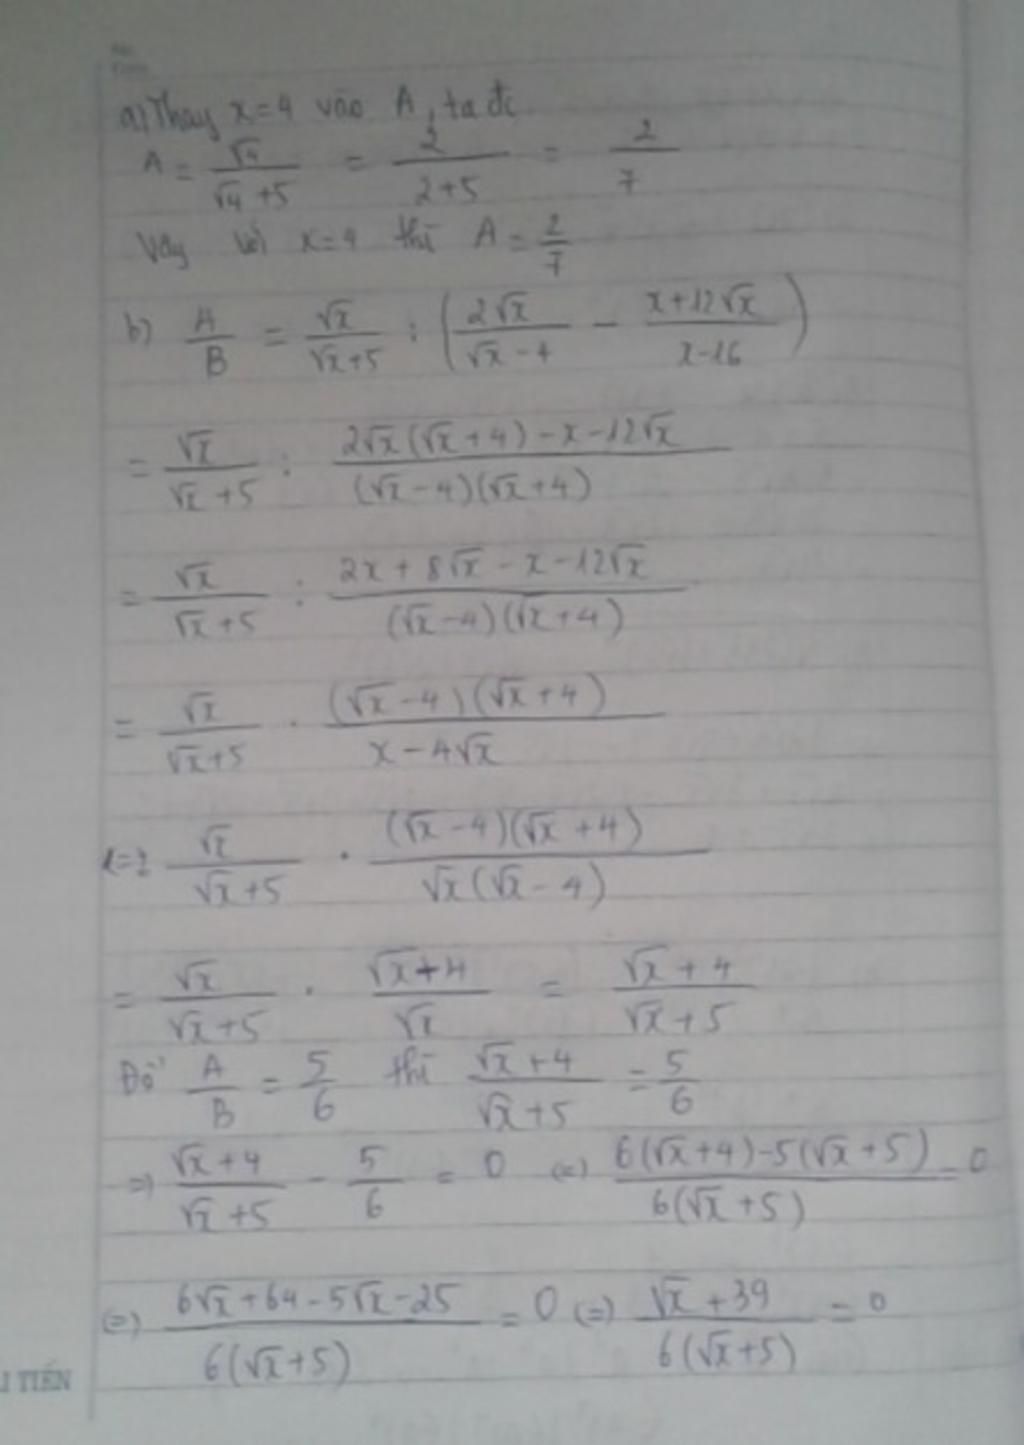 a) Thay x=4 vào A, ta đc
A = √4/(√4+5) = 2/(2+5) = 2/7
Vậy với x=4 thì A = 2/7
b) A/B = √x/(√x+5) : (2√x/(√x-4) - (x+12√x)/(x-16))
= √x/(√x+5) : (2√x(√x+4)-x-12√x)/((√x-4)(√x+4))
= √x/(√x+5) : (2x+8√x-x-12√x)/((√x-4)(√x+4))
= √x/(√x+5) . ((√x-4)(√x+4))/(x-4√x)
√x/(√x+5) . ((√x-4)(√x+4))/(√x(√x-4))
= √x/(√x+5) . (√x+4)/√x = (√x+4)/(√x+5)
Để A/B = 5/6 thì (√x+4)/(√x+5) = 5/6
=) (√x+4)/(√x+5) - 5/6 = 0 (=) (6(√x+4)-5(√x+5))/(6(√x+5)) = 0
(=) (6√x+64-5√x-25)/(6(√x+5)) = 0 (=) (√x+39)/(6(√x+5)) = 0
TIẾN